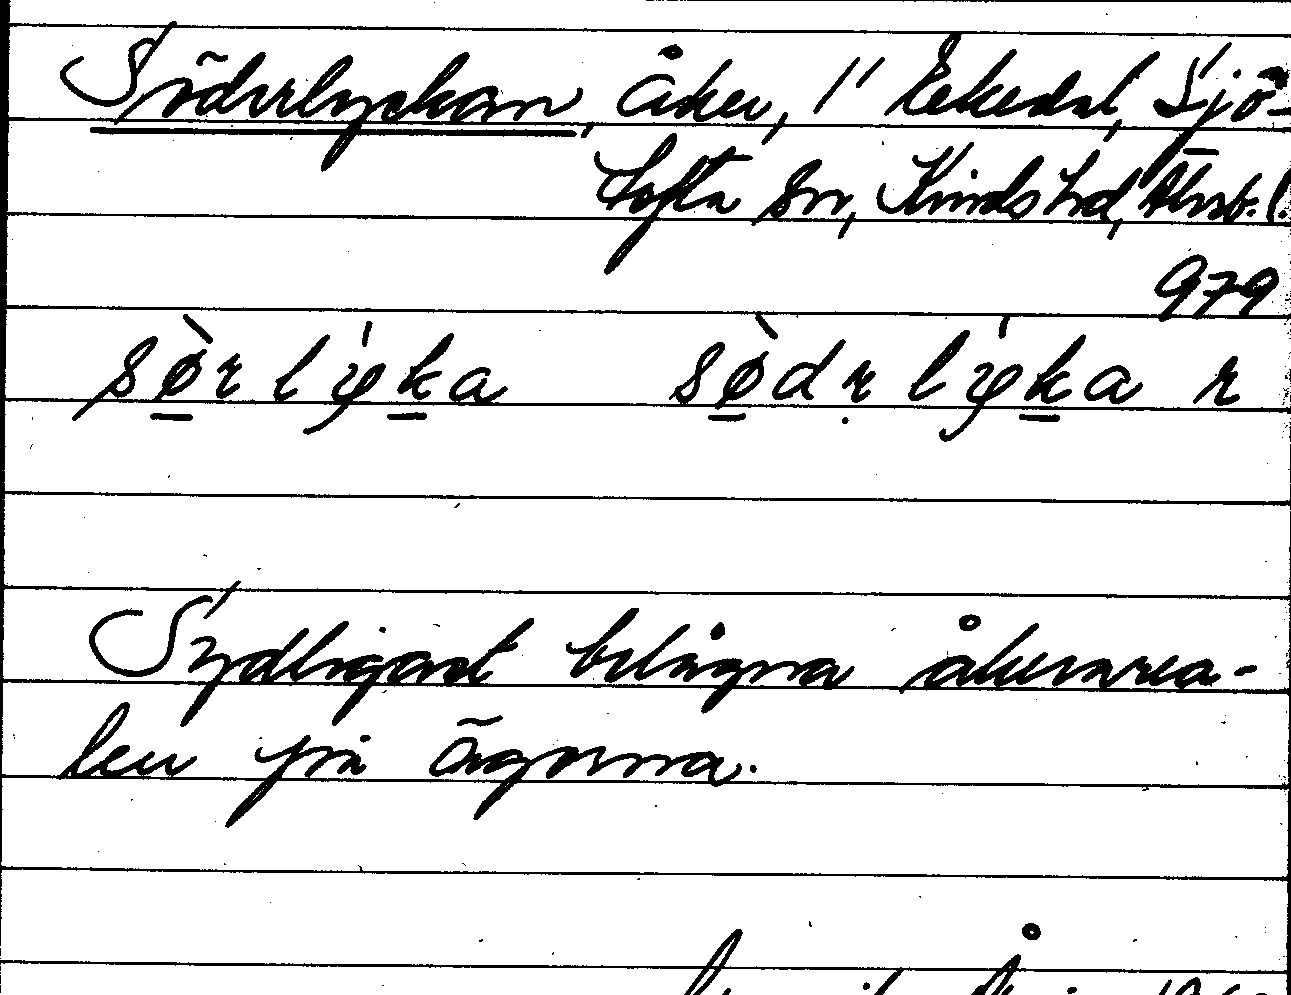 Söderlyckan, åker, 1" Ekedal, Sjö-
tofta sn, Kinds hd, Älvsb. l.
979
sø̀rlýka sø̀dṛlýka r
Sydligast belägna åkerarea-
len på ägorna.